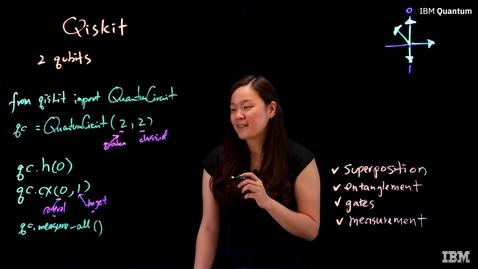 Qiskit
2 qubits
from qiskit import QuantumCircuit
qc = QuantumCircuit(2, 2)
quantum classical
qc.h(0)
qc.cx(0, 1)
control target
qc.measure_all()
0
1
IBM Quantum
✓ superposition
✓ entanglement
✓ gates
✓ measurement
IBM